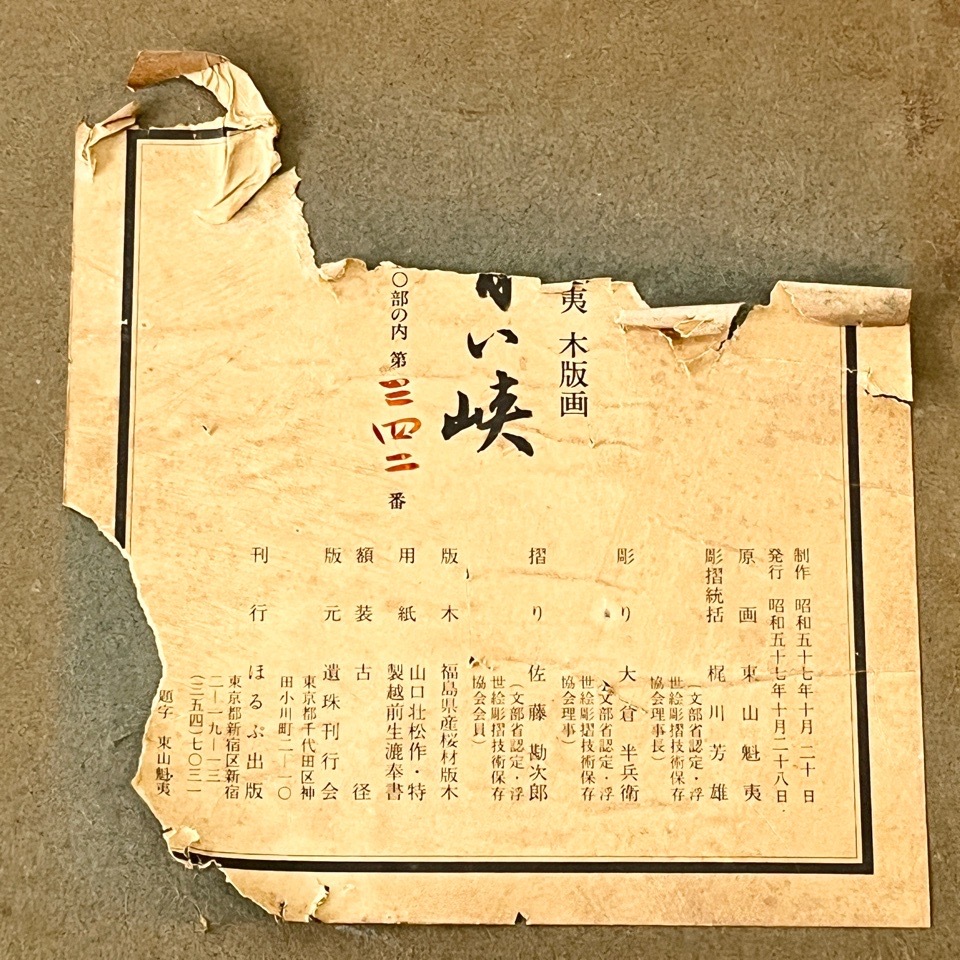 夷 木版画
い峡
〇部の内 第三四二番
制作 昭和五十七年十月 二十 日
発行 昭和五十七年十月二十八日
原画 東山魁夷
彫摺統括 梶川芳雄
（文部省認定・浮
世絵彫摺技術保存
協会理事長）
彫り 大倉半兵衛
（文部省認定・浮
世絵彫摺技術保存
協会理事）
摺り 佐藤勘次郎
（文部省認定・浮
世絵彫摺技術保存
協会会員）
版木 福島県産桜材版木
用紙 山口壮松作・特
製越前生漉奉書
額装 古径
版元 遺珠刊行会
東京都千代田区神
田小川町二ー一〇
刊行 ほるぷ出版
東京都新宿区新宿
二ー一九ー一三
（三五四）七〇三一
題字 東山魁夷